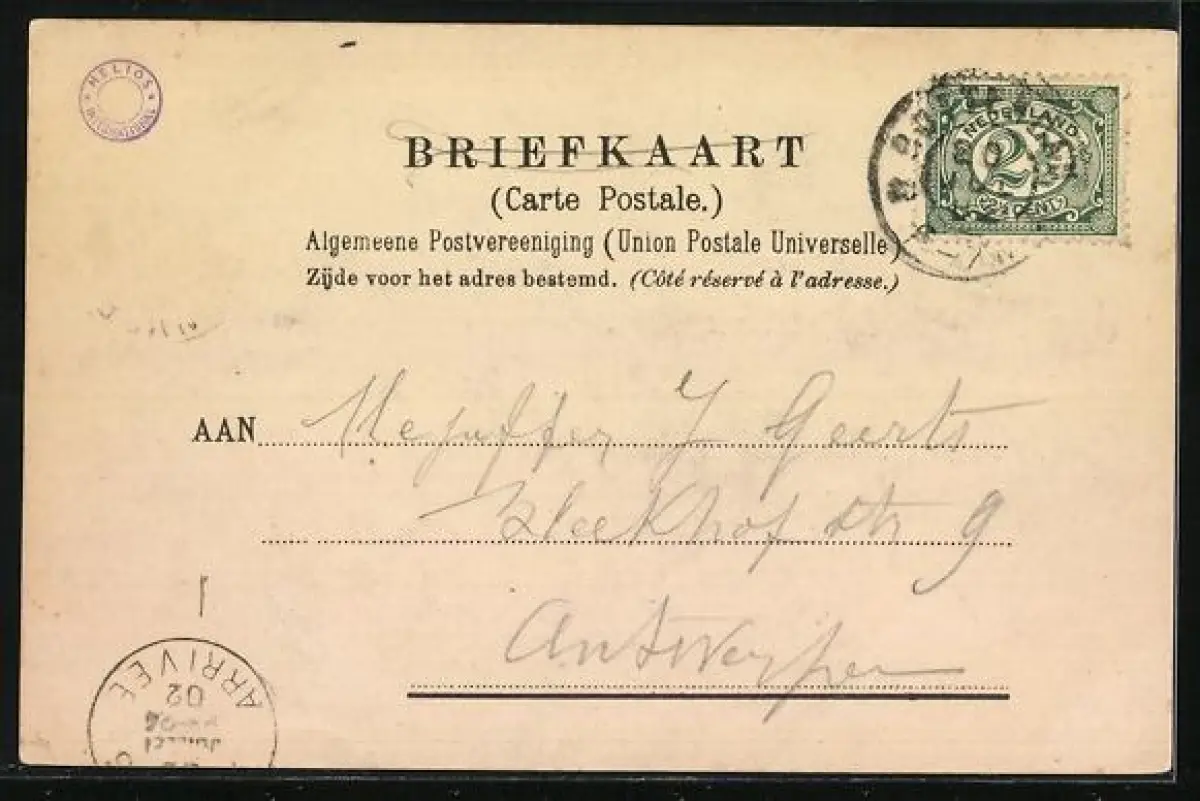 HELIOS
BRIEFKAART
(Carte Postale.)
NEDERLAND
2½ CENT
Algemeene Postvereeniging (Union Postale Universelle)
Zijde voor het adres bestemd. (Côté réservé à l'adresse.)
AAN Mejuffer J Geerts
Bleekhof str 9
Antwerpen
ARRIVEE
02
JUILLET